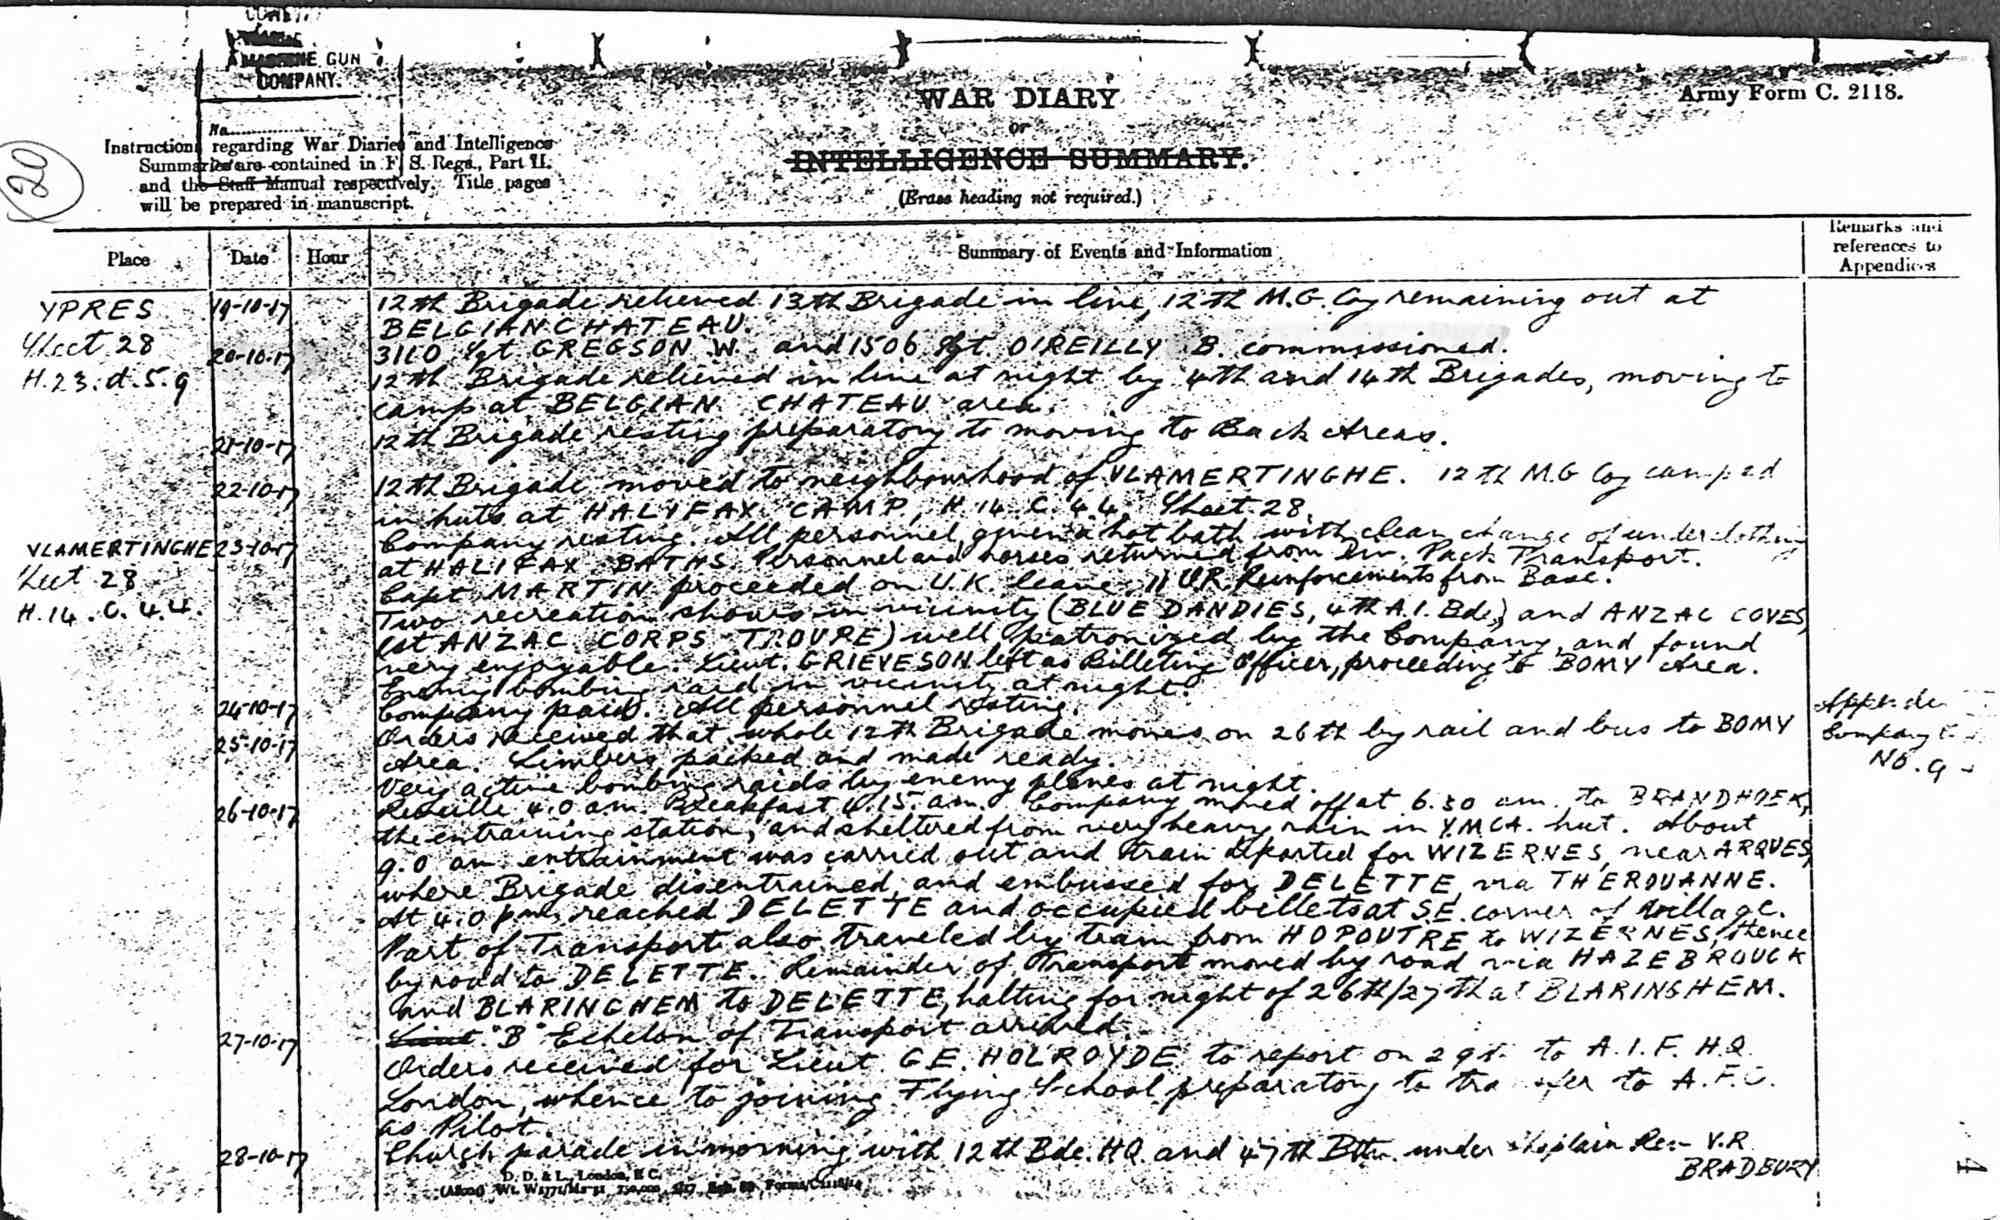 MACHINE GUN
COMPANY.
No.
WAR DIARY
or
INTELLIGENCE SUMMARY.
(Erase heading not required.)
Army Form C. 2118.
20
Instructions regarding War Diaries and Intelligence
Summaries are contained in F. S. Regs., Part II.
and the Staff Manual respectively. Title pages
will be prepared in manuscript.
Place Date Hour Summary of Events and Information Remarks and
references to
Appendices
YPRES 19-10-17 12th Brigade relieved 13th Brigade in line, 12th M.G. Coy remaining out at
Sheet 28 BELGIAN CHATEAU.
20-10-17 3110 Sgt GREGSON W. and 1506 Sgt O'REILLY B. commissioned.
H.23.d.5.9 12th Brigade relieved in line at night by 4th and 14th Brigades, moving to
camp at BELGIAN CHATEAU area.
21-10-17 12th Brigade resting preparatory to moving to Back Areas.
22-10-17 12th Brigade moved to neighbourhood of VLAMERTINGHE. 12th M.G Coy camped
in huts at HALIFAX CAMP, H.14.C.4.4. Sheet 28.
VLAMERTINGHE 23-10-17 Company resting. All personnel given a hot bath with clean change of underclothing
at HALIFAX BATHS. Personnel and horses returned from Div. Pack Transport.
Sheet 28 Capt MARTIN proceeded on U.K. leave. 11 O.R. Reinforcements from Base.
H.14.C.4.4. Two recreation shows in vicinity (BLUE DANDIES, 4th A.I. Bde,) and ANZAC COVES,
1st ANZAC CORPS TROUPE) well patronized by the Company, and found
very enjoyable. Lieut. GRIEVESON left as Billeting Officer, proceeding to BOMY Area.
Enemy bombing raid in vicinity at night.
24-10-17 Company paid. All personnel resting.
25-10-17 Orders received that whole 12th Brigade moves on 26th by rail and bus to BOMY
Area. Limbers packed and made ready. Company
No. 9
Very active bombing raids by enemy planes at night.
26-10-17 Reveille 4.0 am. Breakfast 4.15. am. Company moved off at 6.30 am. to BRANDHOEK,
the entraining station, and sheltered from very heavy rain in Y.M.C.A. hut. About
9.0 am entrainment was carried out and train departed for WIZERNES, near ARQUES,
where Brigade disentrained, and embussed for DELETTE, via THEROUANNE.
At 4.0 pm, reached DELETTE and occupied billets at S.E. corner of village.
Part of Transport also traveled by train from HOPOUTRE to WIZERNES, thence
by road to DELETTE. Remainder of Transport moved by road via HAZEBROUCK
and BLARINGHEM to DELETTE, halting for night of 26th/27th at BLARINGHEM.
27-10-17 Lieut. "B" Echelon of Transport arrived
Orders received for Lieut. G.E. HOLROYDE to report on 29th to A.I.F. H.Q.
London, whence to joining Flying School preparatory to transfer to A.F.C.
as Pilot.
28-10-17 Church parade in morning with 12th Bde. HQ. and 47th Bttn. under Chaplain Rev V.R
BRADBURY
D. D. & L., London, E.C.